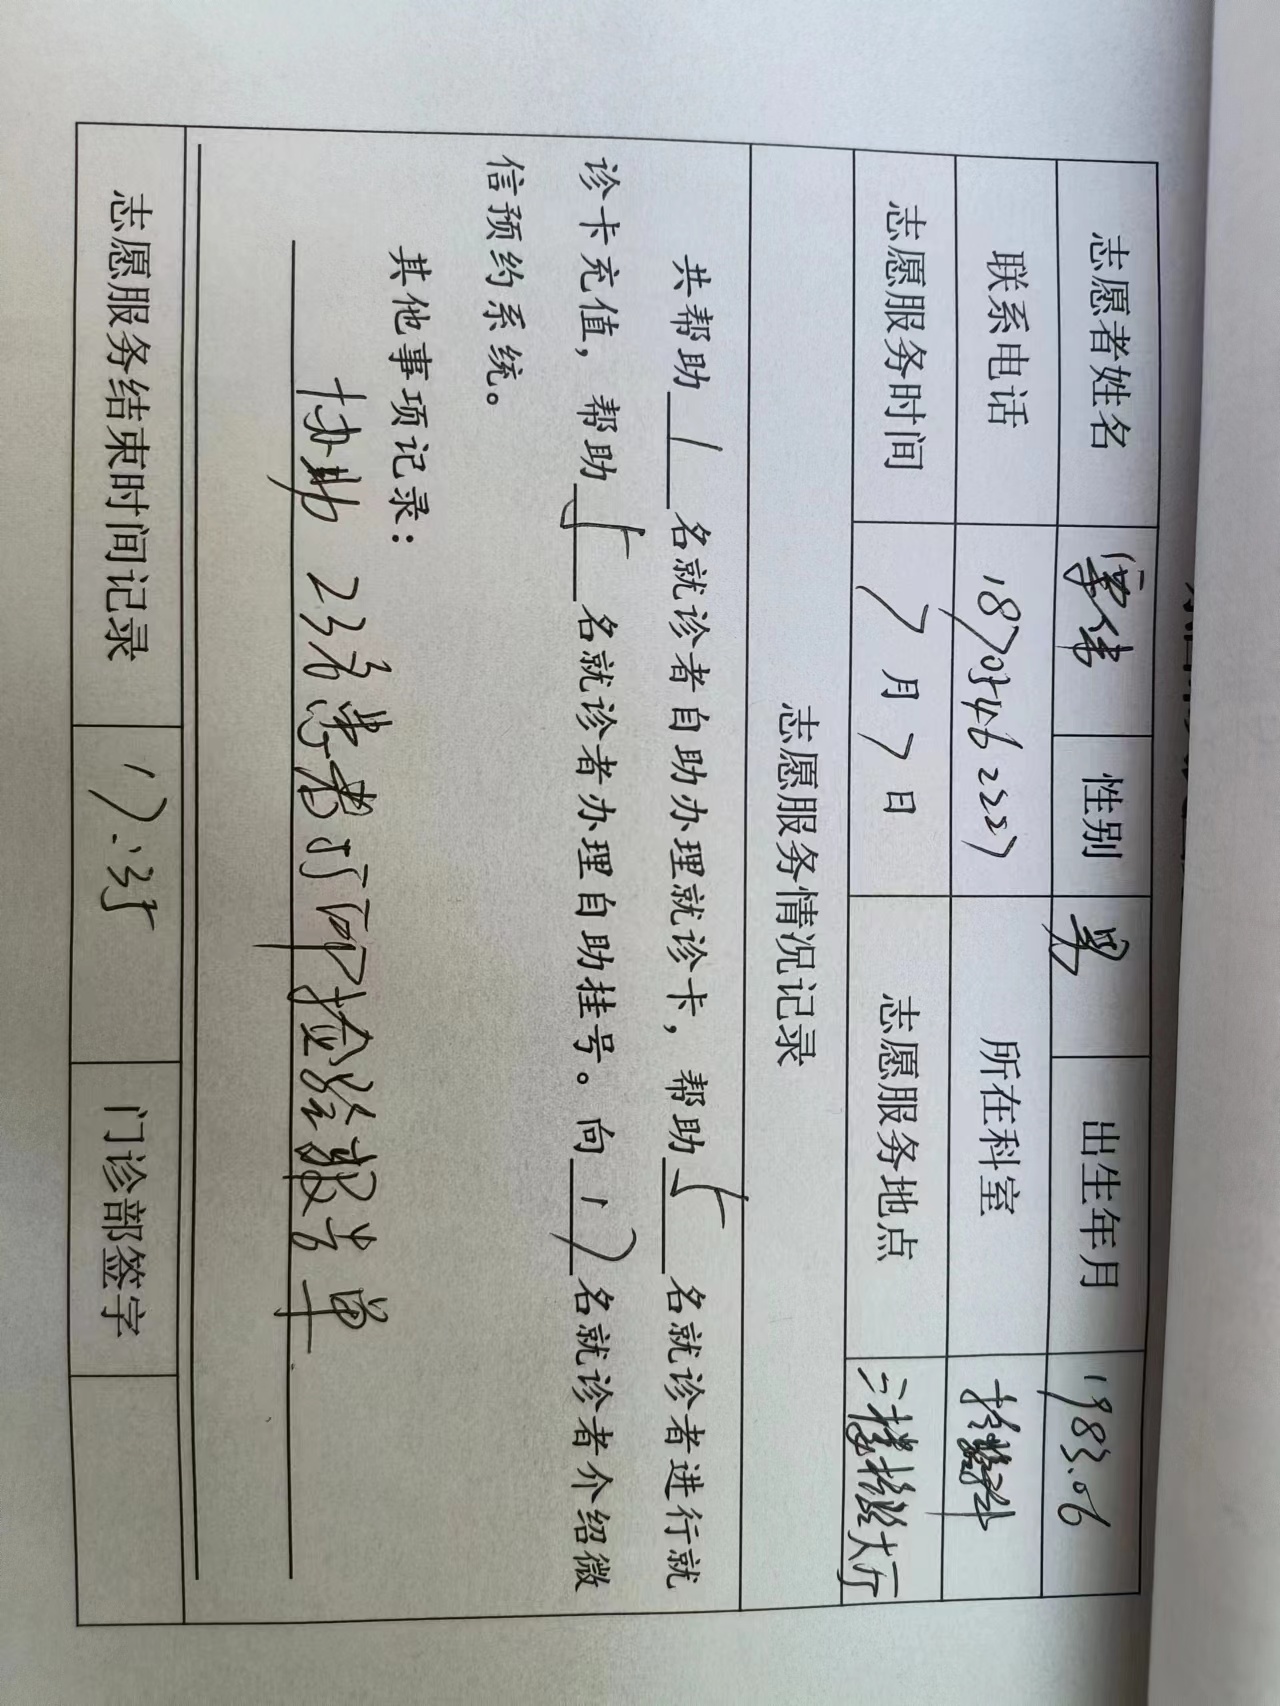 志愿者姓名 伟 性别 男 出生年月 1983.06
联系电话 18703462227 所在科室 检验科
志愿服务时间 7月7日 志愿服务地点 二楼检验大厅
志愿服务情况记录
共帮助 1 名就诊者自助办理就诊卡，帮助 5 名就诊者进行就
诊卡充值，帮助 5 名就诊者办理自助挂号。向 17 名就诊者介绍微
信预约系统。
其他事项记录：
协助 23名患者打印检验报告单
志愿服务结束时间记录 17:35 门诊部签字